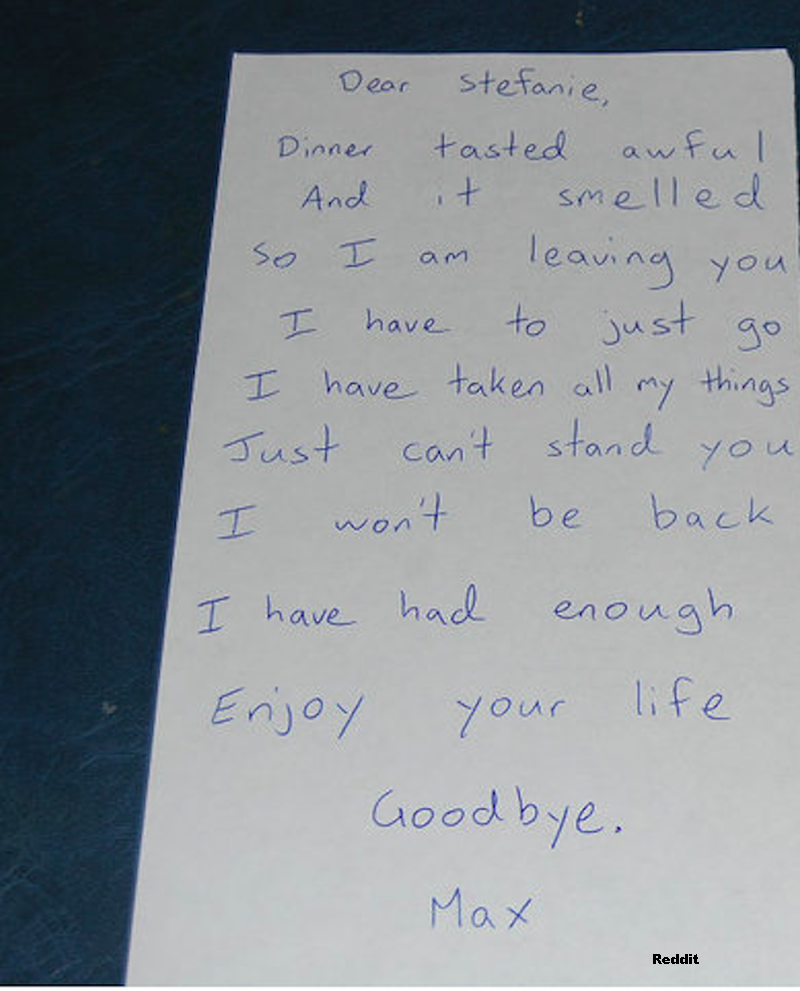 Dear Stefanie,
Dinner tasted awful
And it smelled
So I am leaving you
I have to just go
I have taken all my things
Just can't stand you
I won't be back
I have had enough
Enjoy your life
Goodbye.
Max
Reddit